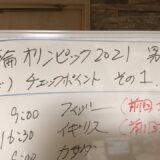 輪 オリンピック 2021 男
) チェックポイント その1
9:00 フィジー (前回
16:30 イギリス (前回
カナダ